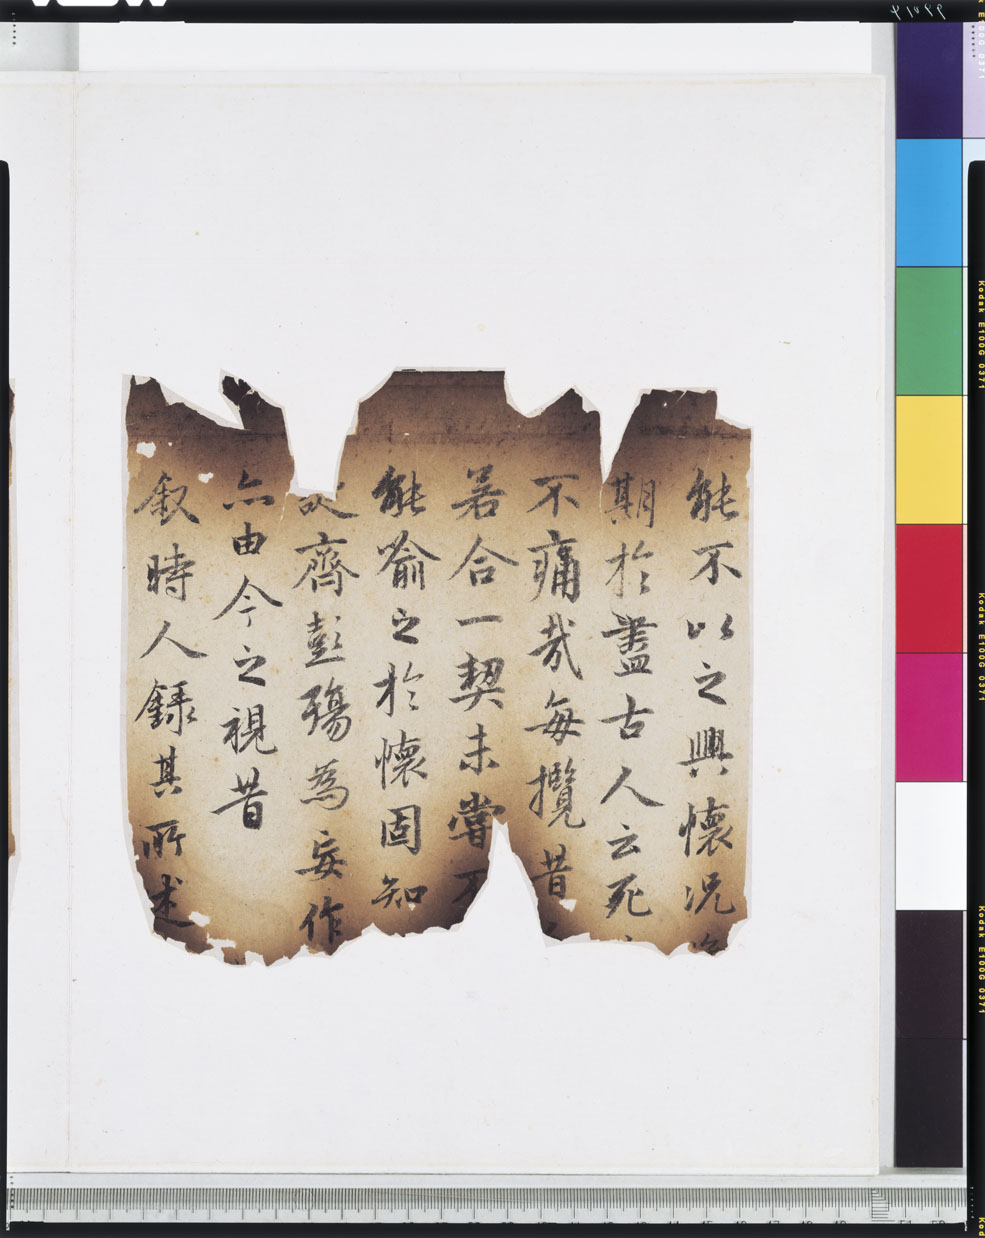 能不以之興懷況
期於盡古人云死
不痛哉每攬昔
若合一契未嘗不
能喻之於懷固知
齊彭殤為妄作
亦由今之視昔
叙時人錄其所述
99014
Kodak E100G 0371
Kodak E100G 0371
Kodak E100G 0371